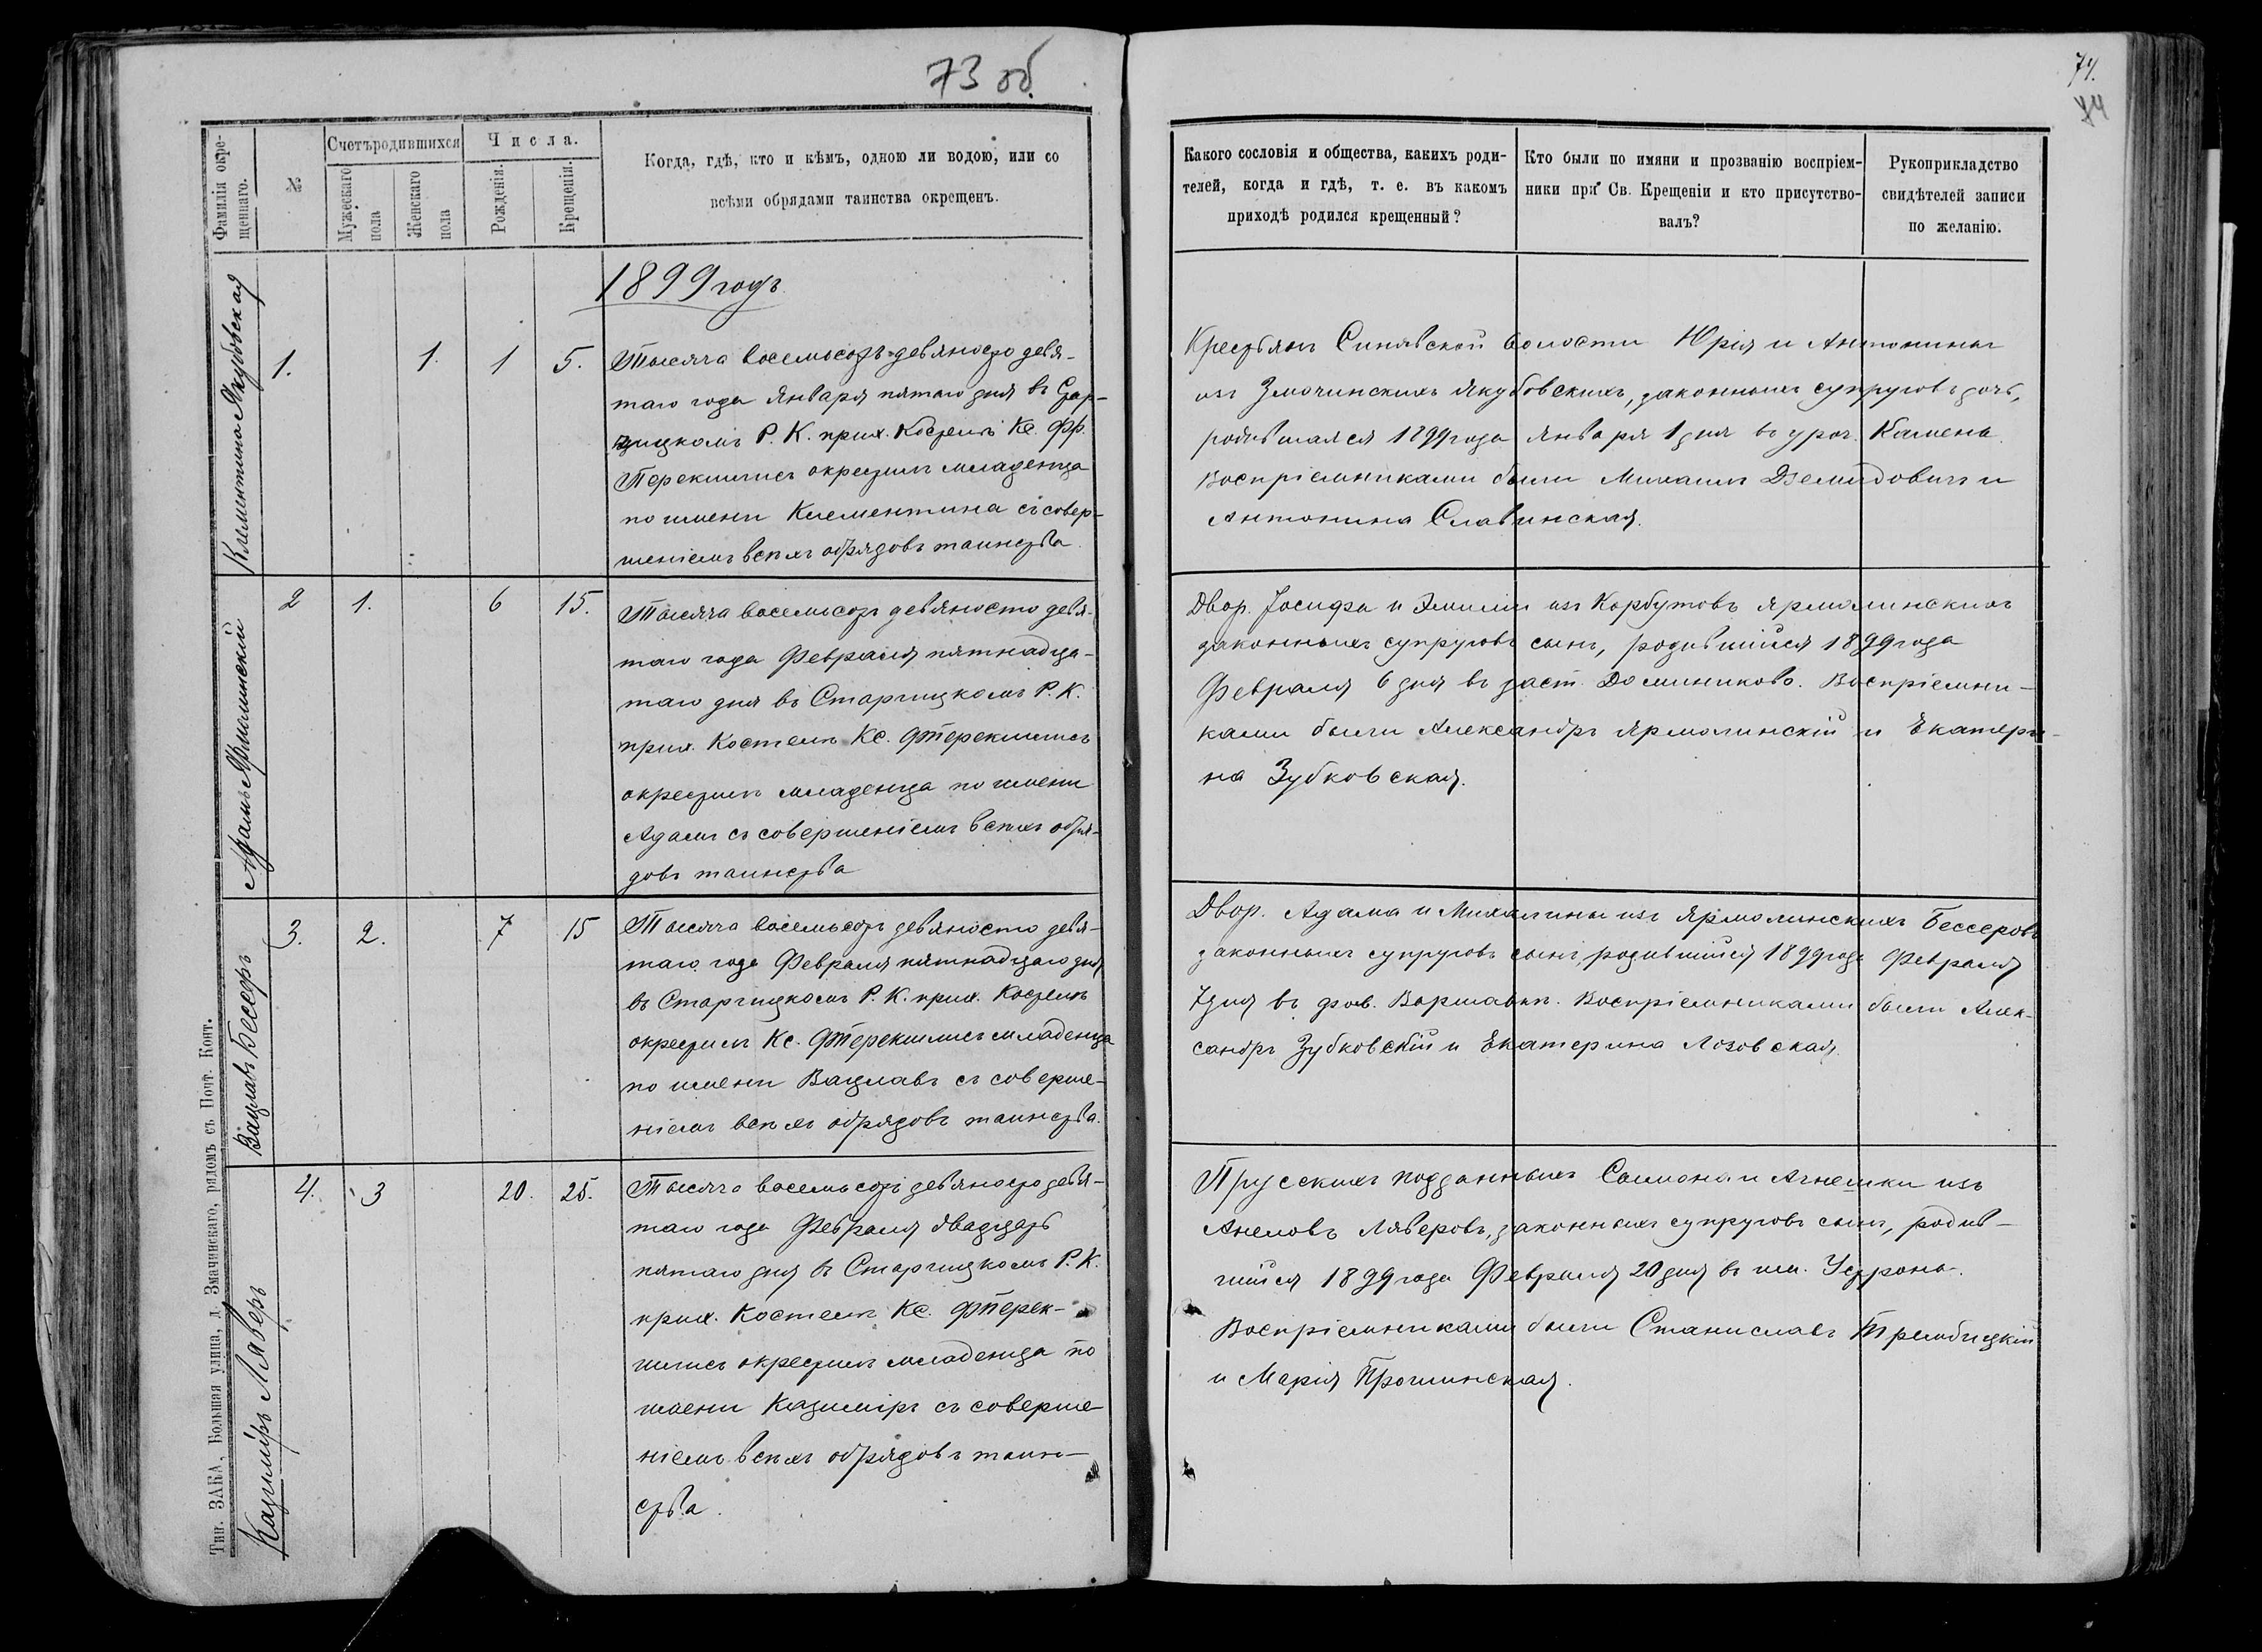 73 об.
Фамилія окрещеннаго.
№
Счетъ родившихся
Мужескаго пола
Женскаго пола
Числа.
Рожденія.
Крещенія.
Когда, гдѣ, кто и кѣмъ, одною ли водою, или со
всѣми обрядами таинства окрещенъ.
1899 годъ
Клементина Якубовская
1.
1.
1
5.
Тысяча восемьсотъ девяносто девя-
таго года Января пятаго дня въ Стар-
чицкомъ Р. К. прих. Костелѣ Кс. Фр.
окрестилъ младенца
по имени Клементина съ совер-
шеніемъ всѣхъ обрядовъ таинства.
Адамъ Ярмолинскій
2
1.
6
15.
Тысяча восемьсотъ девяносто девя-
таго года Февраля пятнадца-
таго дня въ Старчицкомъ Р. К.
прих. Костелѣ Кс.
окрестилъ младенца по имени
Адамъ съ совершеніемъ всѣхъ обря-
довъ таинства
Вацлавъ Бессеръ
3.
2.
7
15
Тысяча восемьсотъ девяносто девя-
таго года Февраля пятнадцаго дня
въ Старчицкомъ Р. К. прих. Костелѣ
окрестилъ Кс. младенца
по имени Вацлавъ съ соверше-
ніемъ всѣхъ обрядовъ таинства.
Казиміръ Ляверъ
4.
3
20.
25.
Тысяча восемьсотъ девяносто девя-
таго года Февраля двадцать
пятаго дня въ Старчицкомъ Р. К.
прих. Костелѣ Кс.
окрестилъ младенца по
имени Казиміръ съ соверше
ніемъ всѣхъ обрядовъ таин-
ства.
Тип. ЗАКА, Большая улица, д. Змачинскаго, рядомъ съ Почт. Конт.
74.
74
Какого сословія и общества, какихъ роди-
телей, когда и гдѣ, т. е. въ какомъ
приходѣ родился крещенный?
Кто были по имяни и прозванію воспріем-
ники при Св. Крещеніи и кто присутство-
валъ?
Рукоприкладство
свидѣтелей записи
по желанію.
Крестьянъ Синявской волости Юрія и Антонины
изъ Змачинскихъ Якубовскихъ, законныхъ супруговъ дочь,
родившаяся 1899 года Января 1 дня въ уроч. Камень.
Воспріемниками были Михаилъ Дземидовичъ и
Антонина Славинская.
Двор. Іосифа и Эмиліи изъ Корбутовъ Ярмолинскихъ
законныхъ супруговъ сынъ, родившійся 1899 года
Февраля 6 дня въ заст. Доминиково. Воспріемни-
ками были Александръ Ярмолинскій и Екатери-
на Зубковская.
Двор. Адама и Михалины изъ Ярмолинскихъ Бессеровъ
законныхъ супруговъ сынъ, родившійся 1899 года Февраля
7 дня въ фол. Воспріемниками были Алек-
сандръ Зубковскій и Екатерина Лозовская.
Прусскихъ подданныхъ и Агнешки изъ
Ляверовъ, законныхъ супруговъ сынъ, родив-
шійся 1899 года Февраля 20 дня въ им.
Воспріемниками были Станиславъ Трембицкій
и Марія